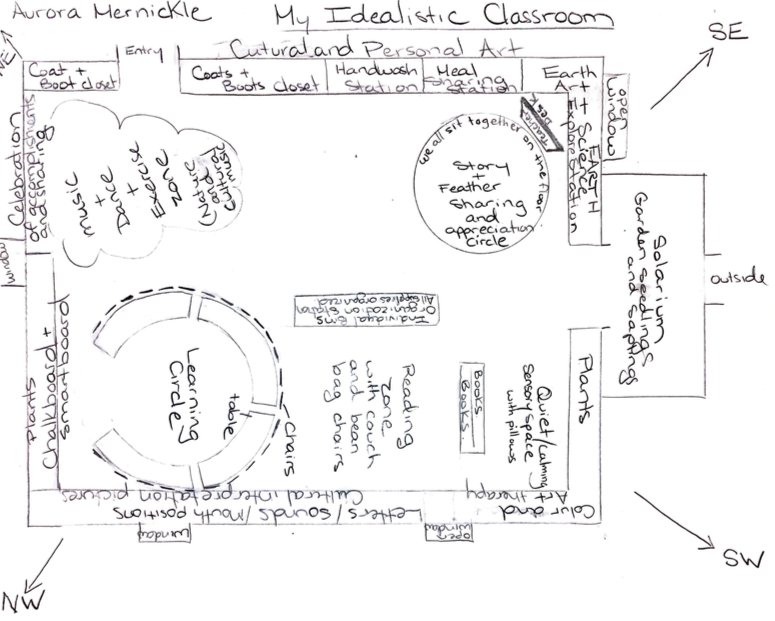 Aurora Mernickle
My Idealistic Classroom
NE
SE
Entry
Cutural and Personal Art
Coat +
Boot closet
Coats +
Boots closet
Handwash
Station
Meal
Sharing
Station
Earth
Art + Science
Explore Station
EARTH
open
window
Teachers
Desk
Celebration
of accomplishments
and sharing
music
+
Dance
+
Exercise
zone
(Nature
and
cultural
music)
we all sit together on the floor
Story
+
Feather
Sharing
and
appreciation
circle
window
Solarium
Garden Seedlings
and Saplings
outside
Individual bins
Organization Station
All supplies organized
Plants
Chalkboard +
Smartboard
Learning
Circle
table
chairs
Reading
Zone
with couch
and bean
bag chairs
Books
Books
Quiet/calming
sensory space
with pillows
Plants
Letters/sounds/Mouth positions
Cultural interpretation pictures
Color and
Art therapy
window
open
window
NW
SW